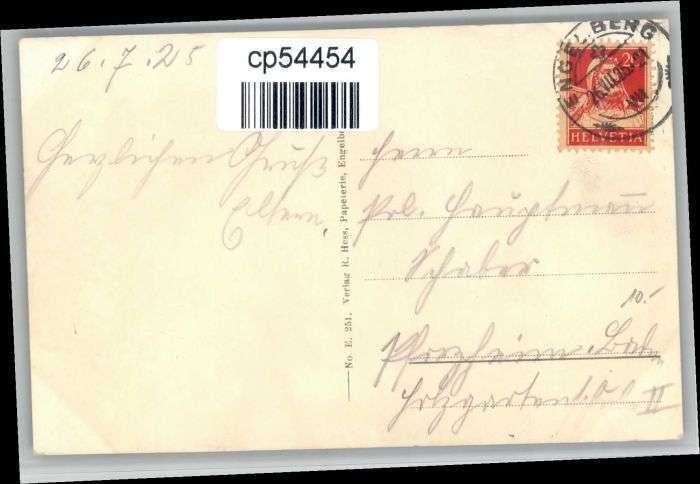 26.7.25
cp54454
ENGELBERG
HELVETIA
Herzlichen Gruß
Eltern
No. E. 251. Verlag R. Hess, Papeterie, Engelbe
Herrn
Hauptmann
Schaber
10.-
Pforzheim. Bad.
Holzgartenst. II